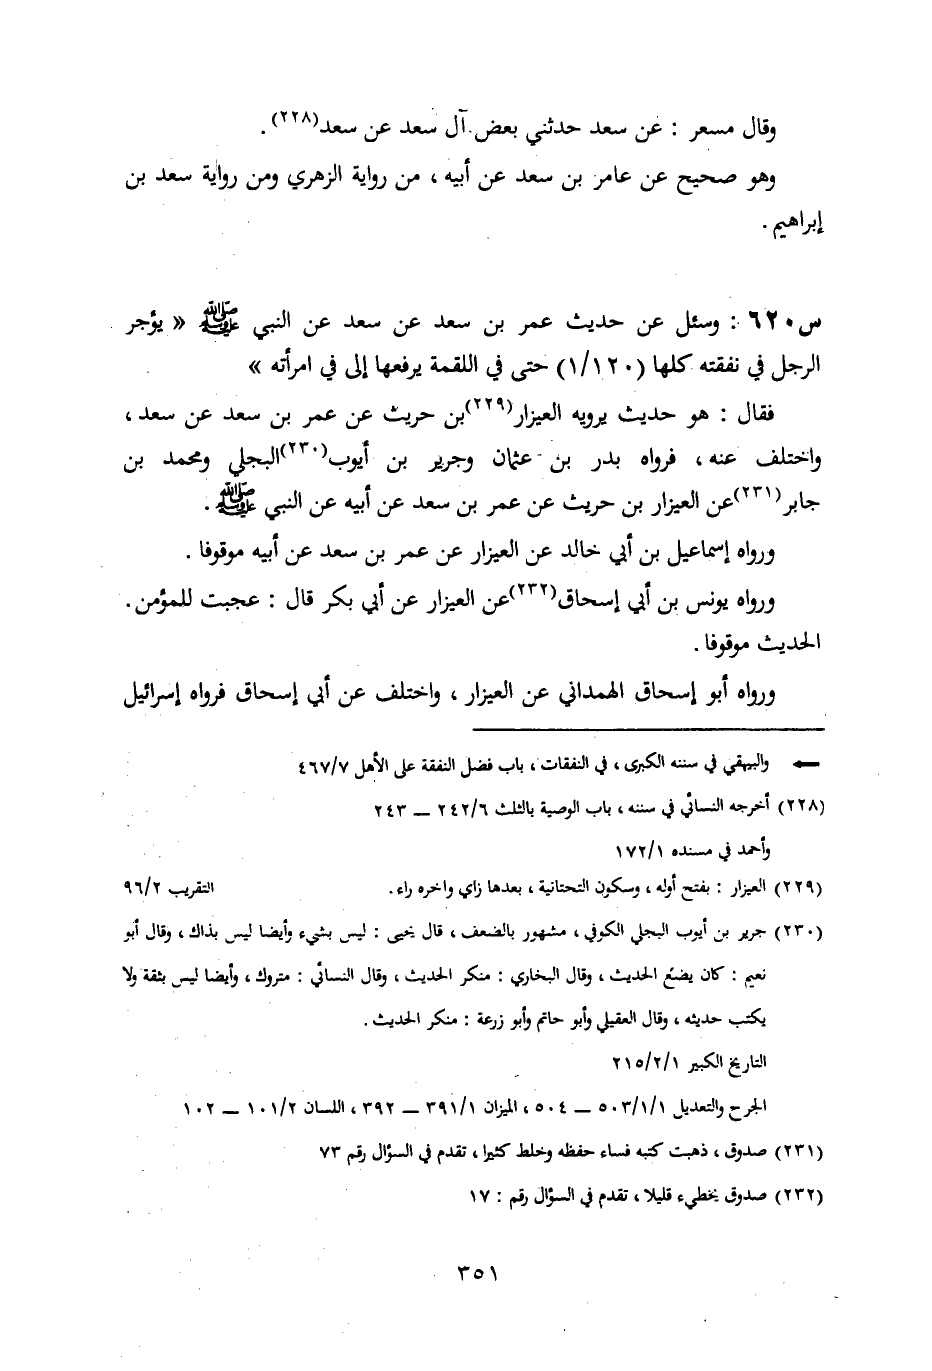 وقال مسعر : عن سعد حدثني بعض آل سعد عن سعد(٢٢٨).
وهو صحيح عن عامر بن سعد عن أبيه ، من رواية الزهري ومن رواية سعد بن
إبراهيم .
س ٦٢٠ : وسئل عن حديث عمر بن سعد عن سعد عن النبي ﷺ « يؤجر
الرجل في نفقته كلها (١/١٢٠) حتى في اللقمة يرفعها إلى في امرأته »
فقال : هو حديث يرويه العيزار(٢٢٩)بن حريث عن عمر بن سعد عن سعد ،
واختلف عنه ، فرواه بدر بن عثمان وجرير بن أيوب(٢٣٠)البجلي ومحمد بن
جابر(٢٣١)عن العيزار بن حريث عن عمر بن سعد عن أبيه عن النبي ﷺ .
ورواه إسماعيل بن أبي خالد عن العيزار عن عمر بن سعد عن أبيه موقوفا .
ورواه يونس بن أبي إسحاق(٢٣٢)عن العيزار عن أبي بكر قال : عجبت للمؤمن.
الحديث موقوفا .
ورواه أبو إسحاق الهمداني عن العيزار ، واختلف عن أبي إسحاق فرواه إسرائيل
← والبيهقي في سننه الكبرى ، في النفقات ، باب فضل النفقة على الأهل ٤٦٧/٧
(٢٢٨) أخرجه النسائي في سننه ، باب الوصية بالثلث ٢٤٢/٦ — ٢٤٣
وأحمد في مسنده ١٧٢/١
(٢٢٩) العيزار : بفتح أوله ، وسكون التحتانية ، بعدها زاي واخره راء. التقريب ٩٦/٢
(٢٣٠) جرير بن أيوب البجلي الكوفي ، مشهور بالضعف ، قال يحيى : ليس بشيء وأيضا ليس بذاك ، وقال أبو
نعيم : كان يضع الحديث ، وقال البخاري : منكر الحديث ، وقال النسائي : متروك ، وأيضا ليس بثقة ولا
يكتب حديثه ، وقال العقيلي وأبو حاتم وأبو زرعة : منكر الحديث .
التاريخ الكبير ٢١٥/٢/١
الجرح والتعديل ٥٠٣/١/١ — ٥٠٤ ، الميزان ٣٩١/١ — ٣٩٢ ، اللسان ١٠١/٢ — ١٠٢
(٢٣١) صدوق ، ذهبت كتبه فساء حفظه وخلط كثيرا ، تقدم في السؤال رقم ٧٣
(٢٣٢) صدوق يخطيء قليلا ، تقدم في السؤال رقم : ١٧
٣٥١